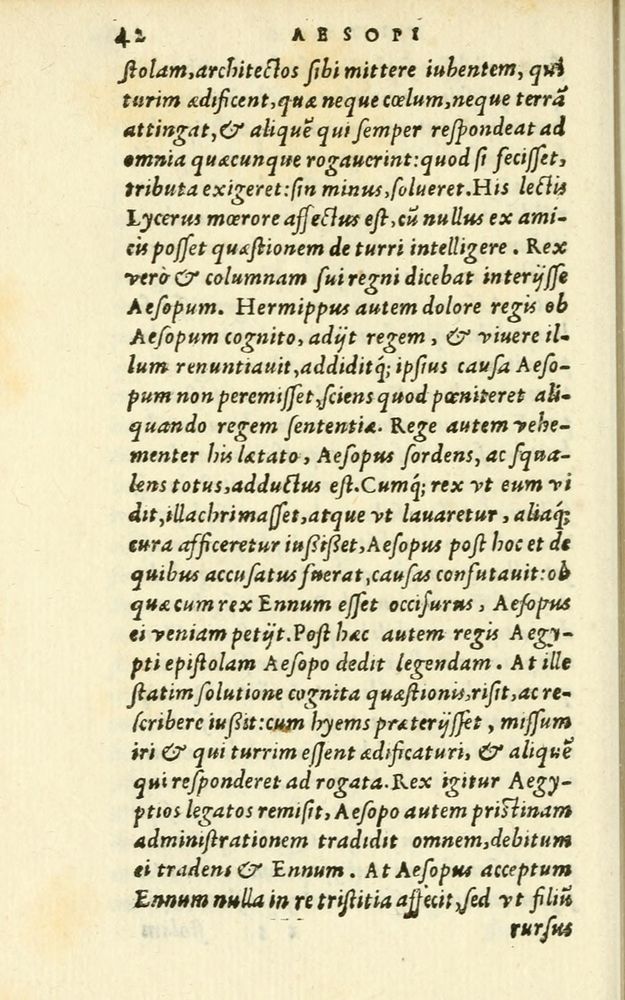 42 AESOPI
ſtolam, architectos ſibi mittere iubentem, qui
turim ædificent, quæ neque cœlum, neque terrã
attingat, & aliquẽ qui ſemper reſpondeat ad
omnia quæcunque rogauerint: quod ſi feciſſet,
tributa exigeret: ſin minus, ſolueret. His lectis
Lycerus mœrore affectus eſt, cũ nullus ex ami-
cis poſſet quæſtionem de turri intelligere. Rex
verò & columnam ſui regni dicebat interijſſe
Aeſopum. Hermippus autem dolore regis ob
Aeſopum cognito, adijt regem, & viuere il-
lum renuntiauit, addiditq́; ipſius cauſa Aeſo-
pum non peremiſſet, ſciens quod pœniteret ali-
quando regem ſententiæ. Rege autem vehe-
menter his lætato, Aeſopus ſordens, ac ſqua-
lens totus, adductus eſt. Cumq́; rex vt eum vi
dit, illachrimaſſet, atque vt lauaretur, aliaq́;
cura afficeretur iußißet, Aeſopus poſt hoc et de
quibus accuſatus fuerat, cauſas confutauit: ob
quæ cum rex Ennum eſſet occiſurus, Aeſopus
ei veniam petijt. Poſt hæc autem regis Aegy-
pti epiſtolam Aeſopo dedit legendam. At ille
ſtatim ſolutione cognita quæſtionis, riſit, ac re-
ſcribere iußit: cum hyems præterijſſet, miſſum
iri & qui turrim eſſent ædificaturi, & aliquẽ
qui reſponderet ad rogata. Rex igitur Aegy-
ptios legatos remiſit, Aeſopo autem priſtinam
adminiſtrationem tradidit omnem, debitum
ei tradens & Ennum. At Aeſopus acceptum
Ennum nulla in re triſtitia affecit, ſed vt filiũ
rurſus